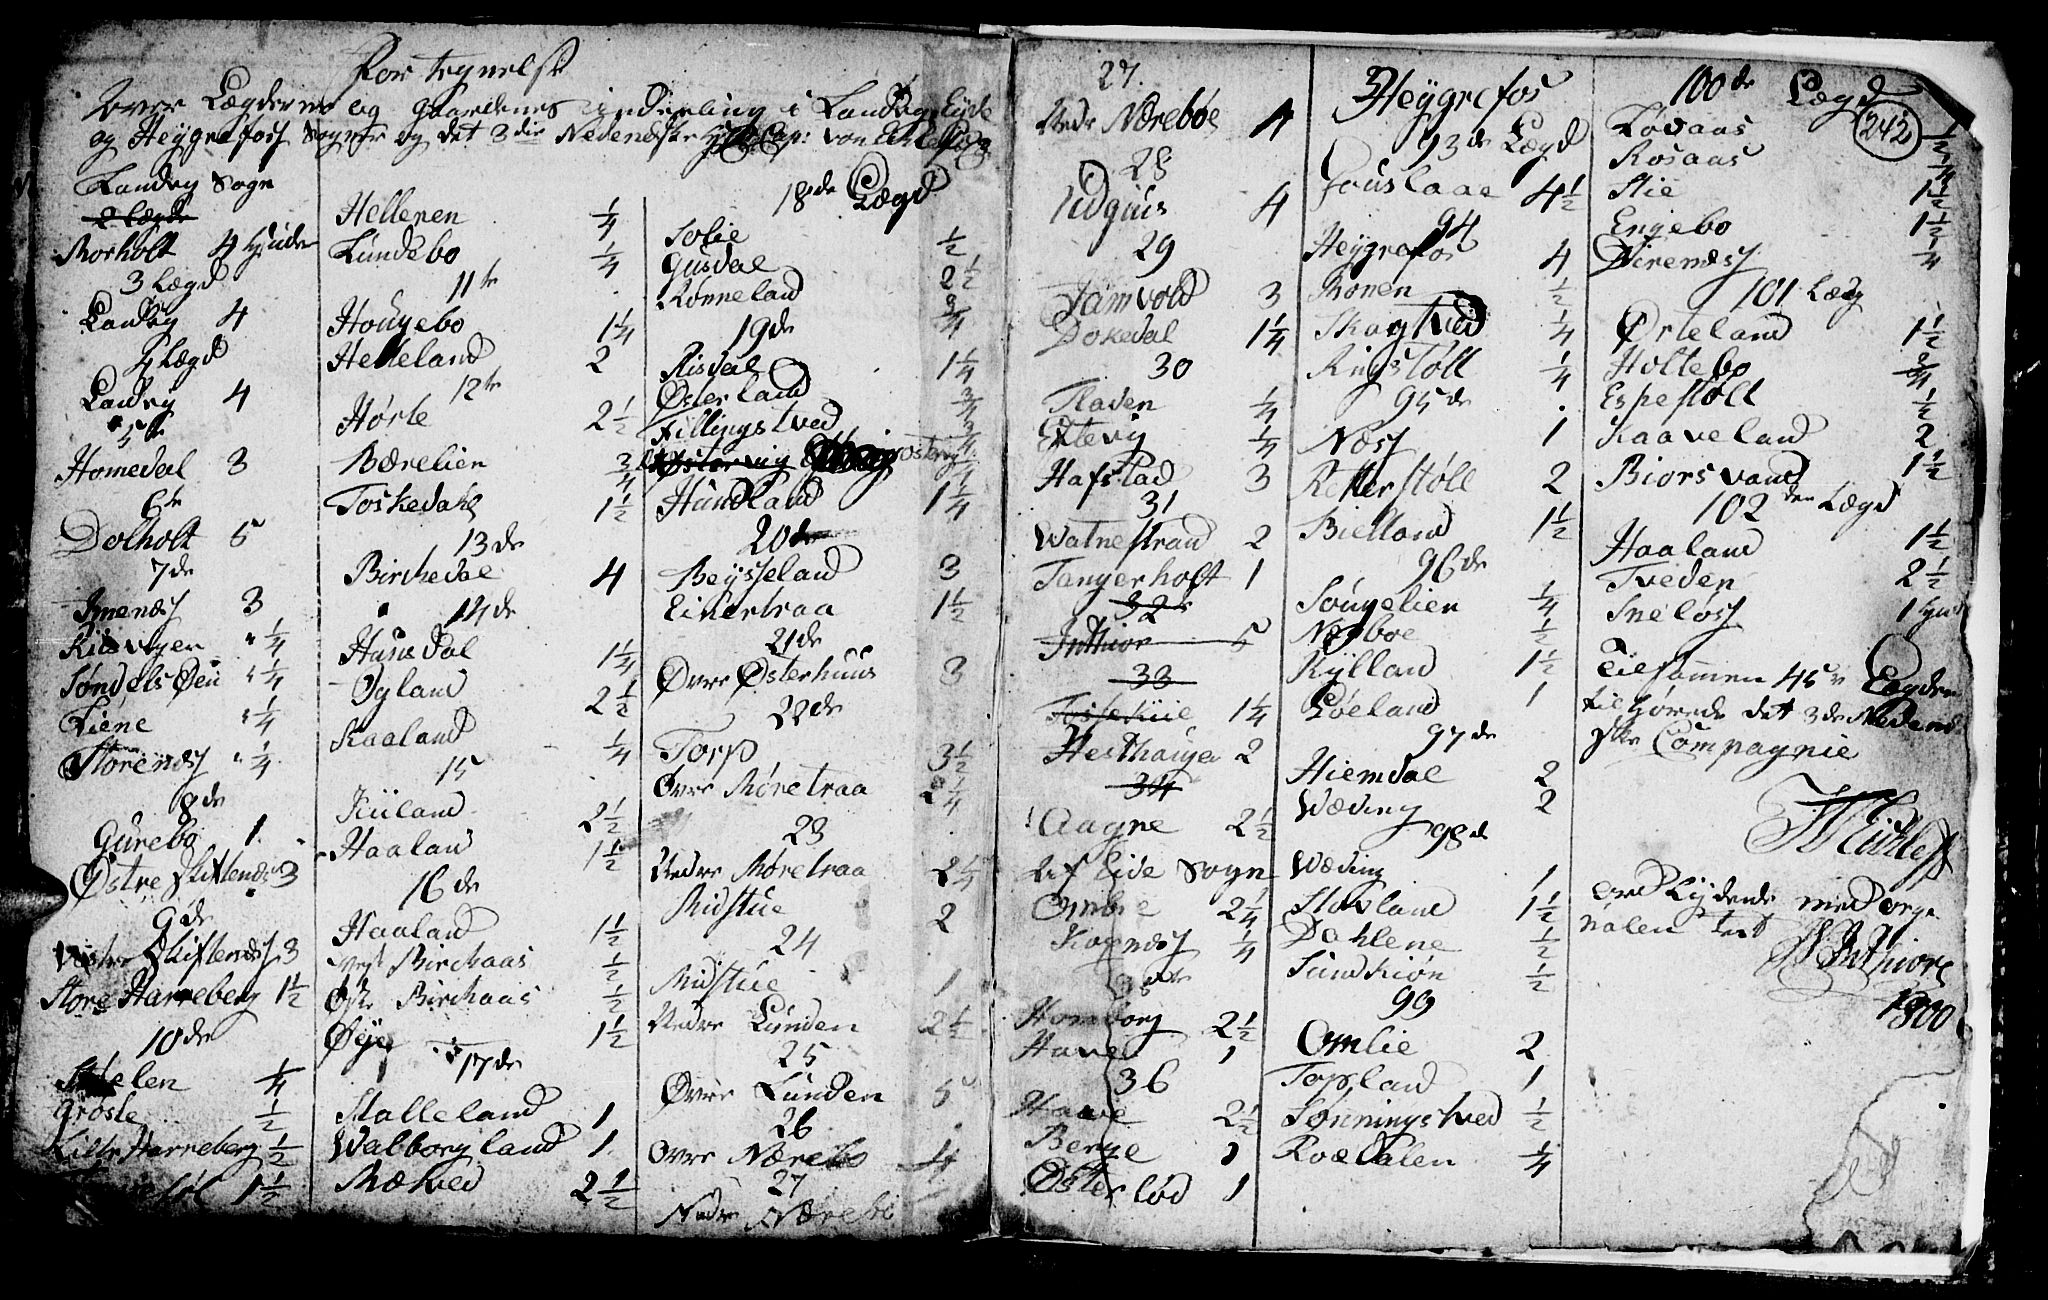 Fortegnelse
over Lægderne og Gaardenes inddeeling i Landvig, Eyde
og Heygrefos Sogner og det 3die Nedenæske Comp: von
Landvig Sogn
2 Lægde
Morholt 4 Huder
3 Lægd
Landvig 4
4 Lægd
Landvig 4
5te
Homedal 3
6te
Dolholt 5
7de
Imenæs 3
Risvigen " 1/4
Søndels Øen " 1/4
Liene " 1/4
Storenæs " 1/4
8de
Gurebo 1.
Østre Skiftenæs 3
9de
Vestre Skiftenæs 3
Store Harreberg 1 1/2
10de
1/4
Groste 1/2
Lille Harreberg 1/2
1 1/2
Helleren 1/4
Lundebo 1/4
11te
Hougebo 1 1/4
Helleland 2
12te
Hørte 2 1/2
Bærelien 3/4
Toskedahl 1 1/2
13de
Birkedal 4
14de
Hunsdal 1 1/4
Øgland 2 1/2
Kaaland 1/4
15
Kiland 2 1/2
Haaland 1 1/2
16de
Haaland 1 1/2
Vest Birchaas 1/2
Øst Birchaas 1/2
Øye 1 1/2
17de
Stalleland 1
Walborgland 1
Rætved 2 1/2
18de Lægd
Solie 1/2
Gusdal 2 1/2
Rønneland 3/4
19de
Risdal 1 1/4
Østerland 3/4
Fillingstved 3/4
Østervig
Hundland 1 1/4
20de
Reysseland 3
Eikertraa 1 1/2
21de
Øvre Østerhuus 3
22de
Torp 3 1/2
Øvre Møretraa 2 1/4
23
Nedre Møretraa 2 1/4
Midstue 2
24
Midstue 1
Nedre Lunden 2 1/2
25
Øvre Lunden 5
26
Øvre Nærebo 4
27
Nedre Nærebo
27.
Nedr Nærebøe 4
28
4
29
Jamvold 3
Dokedal 1 1/4
30
Fladen 1/4
Extevig 1/4
Hafstad 3
31
Watnestrand 2
Tangerholt 1
32
Inthior 5
33
Tossekiie 1 1/4
Hesthaugen 2
34
Aagre 2 1/2
Af Eide Sogn
Ombre 2 1/4
Kognæs 1/4
35te
Homborg 2 1/2
Have 1
36
Haave 2 1/2
Berge 1
Østerlød 1
Heygrefos
93de Lægd
Fouslaae 4 1/2
94
Heygrefos 4
Monen 1/2
Skogtved 1/4
Ringstøll 1/4
95de
Næss 1
Retterstøll 2
Bielland 1 1/2
96de
Sougelien 1/4
Næsboe 1/2
Kylland 1 1/2
Løeland 1
97de
Hiemdal 2
Wæding 2
98de
Wæding 1
Stavland 1 1/2
Dahlene 1/2
Sundkiøn 1/2
99
Omlie 2
Topland 1
Sønningstved 1/2
Roedalen 1/4
100de Lægd
242
Løvaas 1/2
Rosaas 1/4
Stie 1 1/2
Engebo 1 1/2
Direnæs 1/4
101 Læg
Ørteland 1 1/2
Holtebo 3/4
Espestøll 1/2
Kaaveland 2
Biorsvand 1 1/2
102den Lægd
Haaland 1 1/2
Tveden 2 1/2
Sneloss 1 Hud
Tilsammen 45 Lægder
tilhørende det 3de Nedenæs-
ske Compagnie
ord Lydende med orgi
nalen test
Inthiore
1800